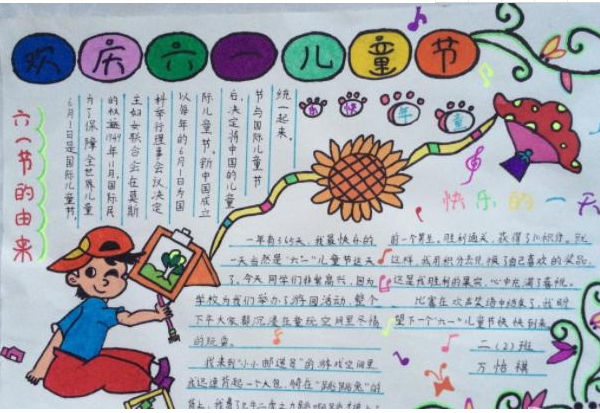 欢庆六一儿童节
六一节的由来
6月1日是国际儿童节，
为了保障全世界儿童
的权益，1949年11月，国际民
主妇女联合会在莫斯
科举行理事会议，决定
以每年的6月1日为国
际儿童节。新中国成立
后，决定将中国的儿童
节与国际儿童节
统一起来。
快 年 童
快乐的一天
一年有365天，我最快乐的
一天当然是“六一”儿童节这天
了。今天同学们非常高兴，因为
学校为我们举办了游园活动，整个
下午大家都沉浸在童玩空间里尽情
的玩耍。
我来到“小小邮递员”的游戏空间里
我迅速背起一个大包，骑在“跳跳兔”的
背上，我费了九牛二虎之力跳
前一个男生，胜利通关，获得了10积分。就
这样，我用积分去兑换了自己喜欢的奖品
这是我胜利的果实，心中充满了喜悦。
比赛在欢声笑语中结束了，我盼
望下一个“六一”儿童节快快到来
二（2）班
万怡祺